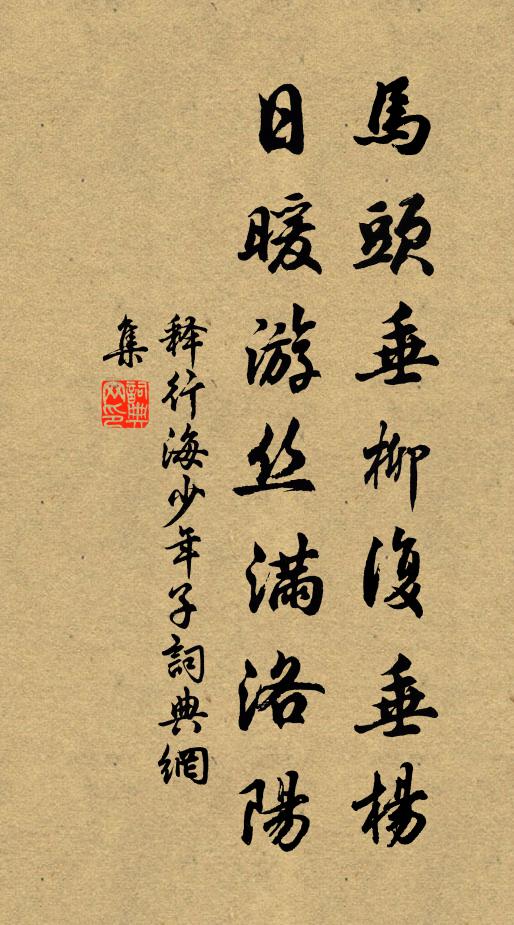 馬頭垂柳復垂楊
日暖游丝滿洛陽
释行海少年子詞典網
集
詞典網印